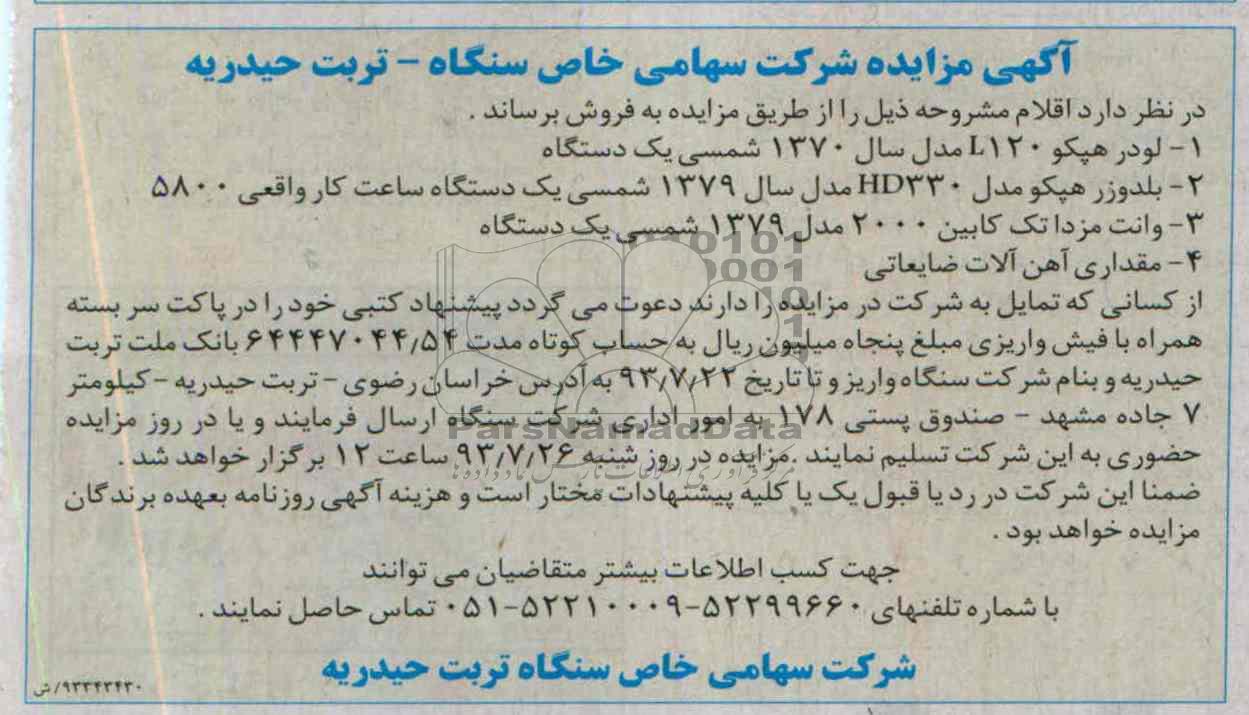 آگهی مزایده شرکت سهامی خاص سنگاه - تربت حیدریه
در نظر دارد اقلام مشروحه ذیل را از طریق مزایده به فروش برساند .
۱- لودر هپکو L۱۲۰ مدل سال ۱۳۷۰ شمسی یک دستگاه
۲- بلدوزر هپکو مدل HD۳۳۰ مدل سال ۱۳۷۹ شمسی یک دستگاه ساعت کار واقعی ۵۸۰۰
۳- وانت مزدا تک کابین ۲۰۰۰ مدل ۱۳۷۹ شمسی یک دستگاه
۴- مقداری آهن آلات ضایعاتی
از کسانی که تمایل به شرکت در مزایده را دارند دعوت می گردد پیشنهاد کتبی خود را در پاکت سر بسته
همراه با فیش واریزی مبلغ پنجاه میلیون ریال به حساب کوتاه مدت ۶۴۴۴۷۰۴۴٫۵۴ بانک ملت تربت
حیدریه و بنام شرکت سنگاه واریز و تا تاریخ ۹۳٫۷٫۲۲ به آدرس خراسان رضوی - تربت حیدریه - کیلومتر
۷ جاده مشهد - صندوق پستی ۱۷۸ به امور اداری شرکت سنگاه ارسال فرمایند و یا در روز مزایده
حضوری به این شرکت تسلیم نمایند .مزایده در روز شنبه ۹۳٫۷٫۲۶ ساعت ۱۲ برگزار خواهد شد .
ضمنا این شرکت در رد یا قبول یک یا کلیه پیشنهادات مختار است و هزینه آگهی روزنامه بعهده برندگان
مزایده خواهد بود .
جهت کسب اطلاعات بیشتر متقاضیان می توانند
با شماره تلفنهای ۵۲۲۹۹۶۶۰-۵۲۲۱۰۰۰۹-۰۵۱ تماس حاصل نمایند .
شرکت سهامی خاص سنگاه تربت حیدریه
۹۳۳۴۳۴۳۰/ش
ParsNamadData